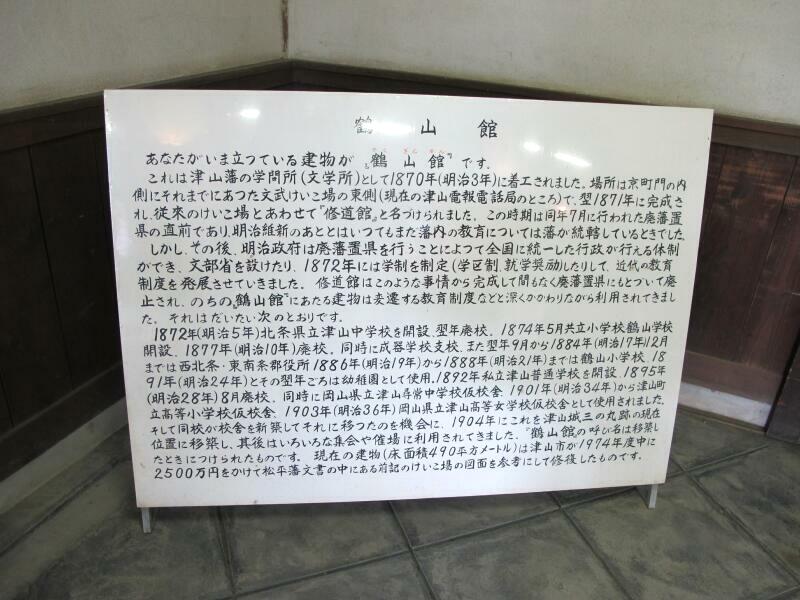 鶴山館
あなたがいま立つている建物が〝鶴山館〟です。
これは津山藩の学問所(文学所)として1870年(明治3年)に着工されました。場所は京町門の内
側にそれまでにあつた文武けいこ場の東側(現在の津山電報電話局のところ)で、翌1871年に完成さ
れ、従来のけいこ場とあわせて〝修道館〟と名づけられました。この時期は同年7月に行われた廃藩置
県の直前であり、明治維新のあととはいつてもまだ藩内の教育については藩が統轄しているときでした。
しかし、その後、明治政府は廃藩置県を行うことによつて全国に統一した行政が行える体制
ができ、文部省を設けたり、1872年には学制を制定(学区制、就学奨励)したりして、近代の教育
制度を発展させていきました。修道館はこのような事情から完成して間もなく廃藩置県にもとづいて廃
止され、のちの〝鶴山館〟にあたる建物は変遷する教育制度などと深くかかわりながら利用されてきまし
た。それはだいたい次のとおりです。
1872年(明治5年)北条県立津山中学校を開設、翌年廃校。1874年5月共立小学校鶴山学校
開設、1877年(明治10年)廃校。同時に成器学校支校、また翌年9月から1884年(明治17年)12月
までは西北条・東南条郡役所1886年(明治19年)から1888年(明治21年)までは鶴山小学校、18
91年(明治24年)とその翌年ごろは幼稚園として使用、1892年私立津山普通学校を開設、1895年
(明治28年)8月廃校。同時に岡山県立津山尋常中学校仮校舎、1901年(明治34年)から津山町
立高等小学校仮校舎、1903年(明治36年)岡山県立津山高等女学校仮校舎として使用されました。
そして同校が校舎を新築してそれに移つたのを機会に、1904年にこれを津山城三の丸跡の現在
位置に移築し、其後はいろいろな集会や催場に利用されてきました。〝鶴山館の呼び名は移築し
たときにつけられたものです。現在の建物(床面積490平方メートル)は津山市が1974年度中に
2500万円をかけて松平藩文書の中にある前記のけいこ場の図面を参考にして修復したものです。